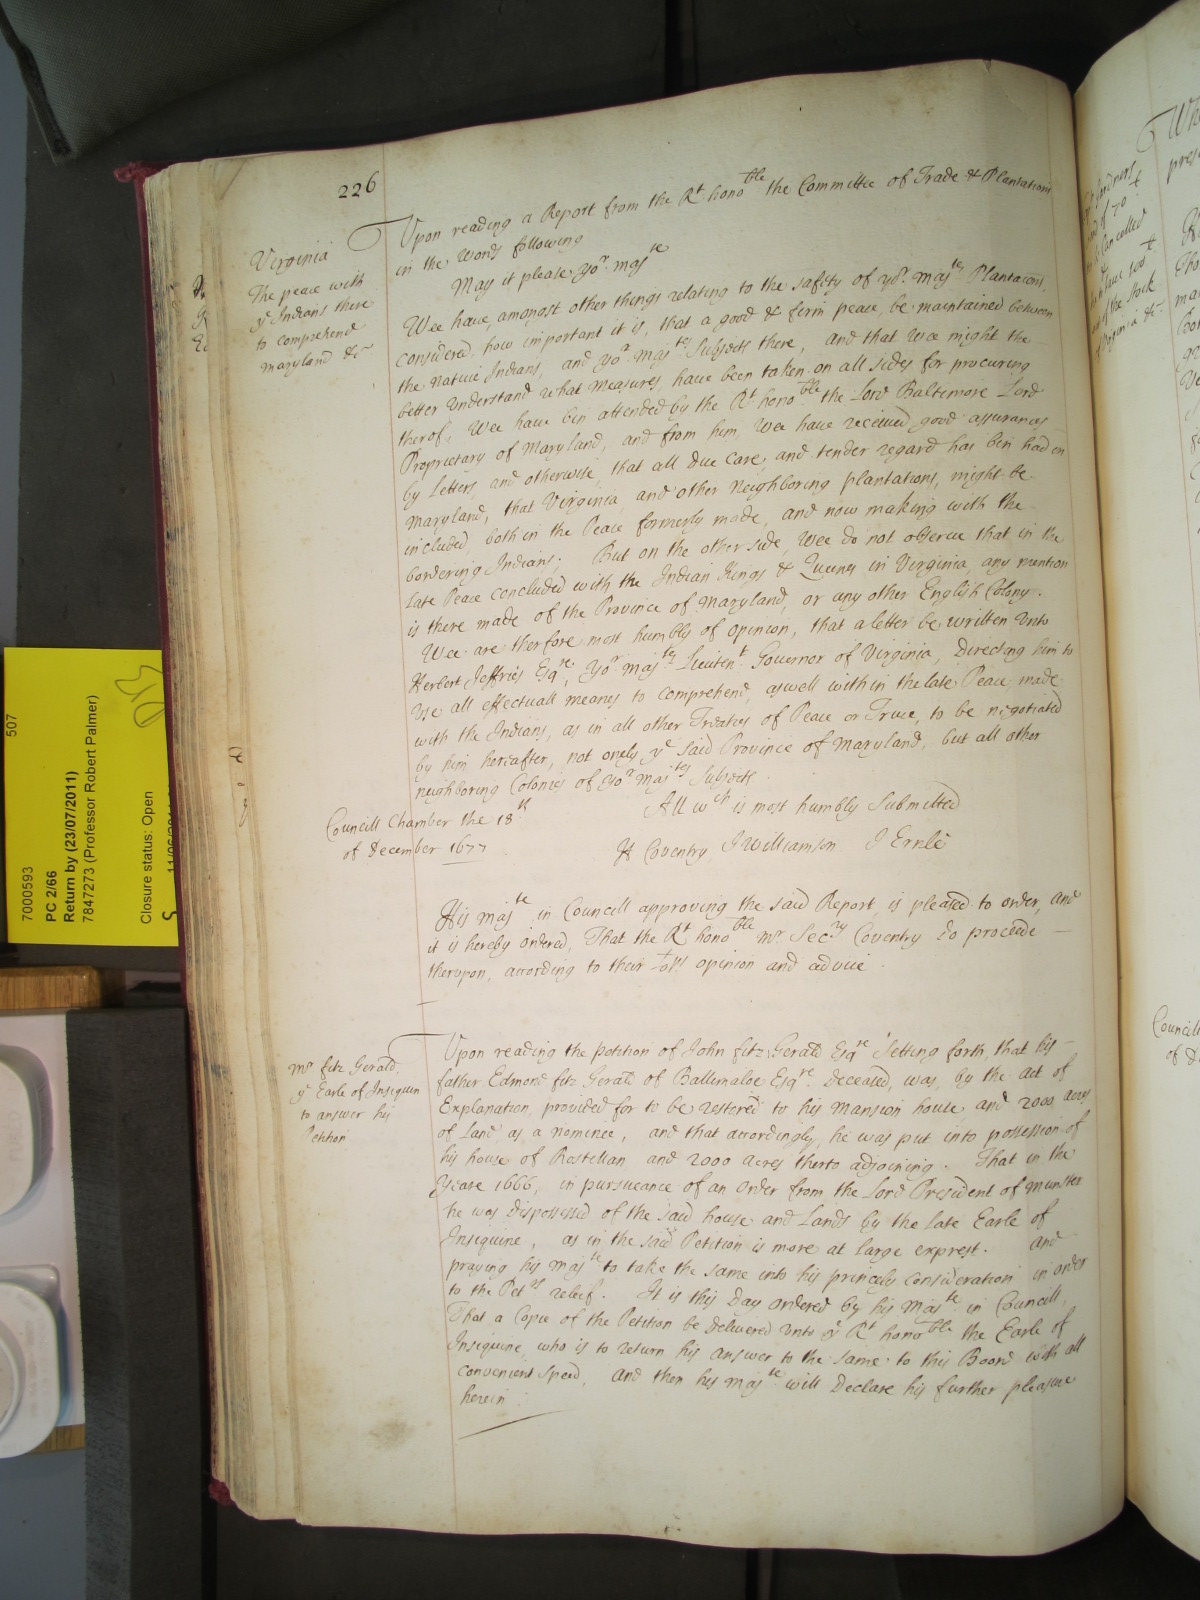 226
Virginia
The peace with
ye Indians there
to comprehend
Maryland &c
Upon reading a Report from the Rt honoble the Committee of Trade & Plantations
in the words following
May it please yor Majte
Wee have, amongst other things relating to the safety of yor Majtys Plantations,
considered how important it is, that a good & firm peace be maintained between
the native Indians, and yor Majtys Subjects there, and that wee might the
better understand what measures have been taken on all sides for procuring
therof, Wee have bin attended by the Rt honoble the Lord Baltemore Lord
Proprietary of Maryland, and from him, wee have received good assurances
by Letters, and otherwise, that all due care, and tender regard has bin had in
Maryland, that Virginia, and other Neighboring plantations, might be
included, both in the Peace formerly made, and now making with the
bordering Indians; But on the other side, wee do not observe that in the
late Peace concluded with the Indian Kings & Queens in Virginia, any mention
is there made of the Province of Maryland, or any other English Colony.
Wee are therfore most humbly of opinion, that a letter be written unto
Herbert Jeffries Esqre, yor Majtys Lieutent Governor of Virginia, Directing him to
use all effectuall means to comprehend, aswell within the late Peace made
with the Indians, as in all other Treaties of Peace or Truce, to be negotiated
by him hereafter, not onely ye said Province of Maryland, but all other
neighboring Colonies of yor Majtys Subjects.
All wch is most humbly Submitted
Councill Chamber the 18th
of December 1677
H Coventry J Williamson J Ernle
His Majte in Councill approving the said Report, is pleased to order, and
it is hereby ordered, That the Rt honoble Mr Secry Coventry do proceede
therupon, according to their Lops opinion and advice.
Mr Fitz Gerald,
ye Earle of Insiquin
to answer his
Petition
Upon reading the petition of John Fitz Gerald Esqre setting forth, that his
father Edmond Fitz Gerald of Ballimaloe Esqre deceased, was, by the Act of
Explanation, provided for to be restored to his Mansion house, and 2000 acres
of Land, as a nominee, and that accordingly, he was put into possession of
his house of Rostellan and 2000 acres therto adjoining. That in the
Yeare 1666, in pursueance of an order from the Lord President of Munster
he was dispossessed of the said house and Lands by the late Earle of
Insiquine, as in the said Petition is more at large exprest. And
praying his Majte to take the same into his princely consideration in order
to the Petrs releif. It is this Day ordered by his Majte in Councill,
That a Copie of the Petition be delivered unto ye Rt honoble the Earle of
Insiquine, who is to return his answer to the same to this Board with all
convenient speed, and then his Majte will Declare his further pleasure
herein.
7000593
507
PC 2/66
Return by (23/07/2011)
7847273 (Professor Robert Palmer)
Closure status: Open